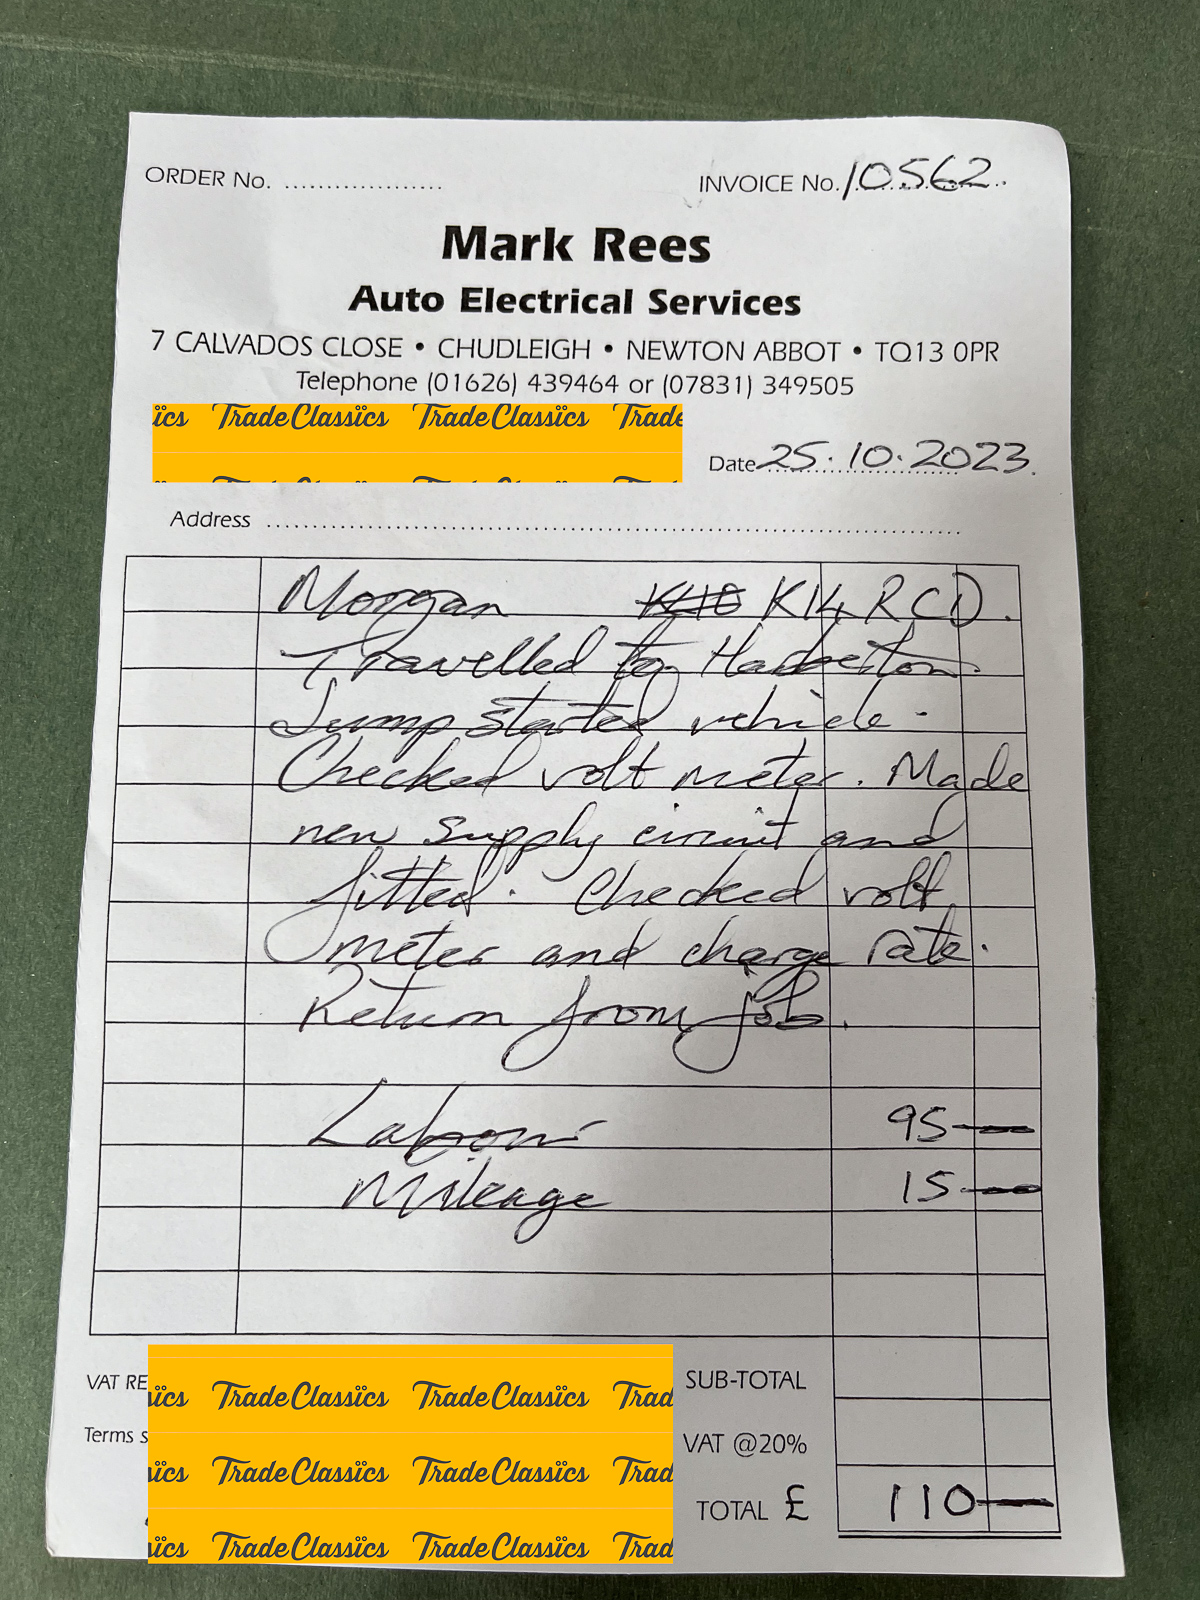 ORDER No. ....................
INVOICE No. 10562
Mark Rees
Auto Electrical Services
7 CALVADOS CLOSE • CHUDLEIGH • NEWTON ABBOT • TQ13 0PR
Telephone (01626) 439464 or (07831) 349505
ics TradeClassics TradeClassics Trade
Date 25.10.2023.
Address ....................
Morgan K14 RCD.
Travelled to Harberton.
Jump started vehicle.
Checked volt meter. Made
new supply circuit and
fitted. Checked volt
meter and charge rate.
Return from job.
Labour 95 —
Mileage 15 —
VAT RE
ics TradeClassics TradeClassics Trad
SUB-TOTAL
Terms s
VAT @20%
ics TradeClassics TradeClassics Trad
TOTAL £ 110 —
ics TradeClassics TradeClassics Trad